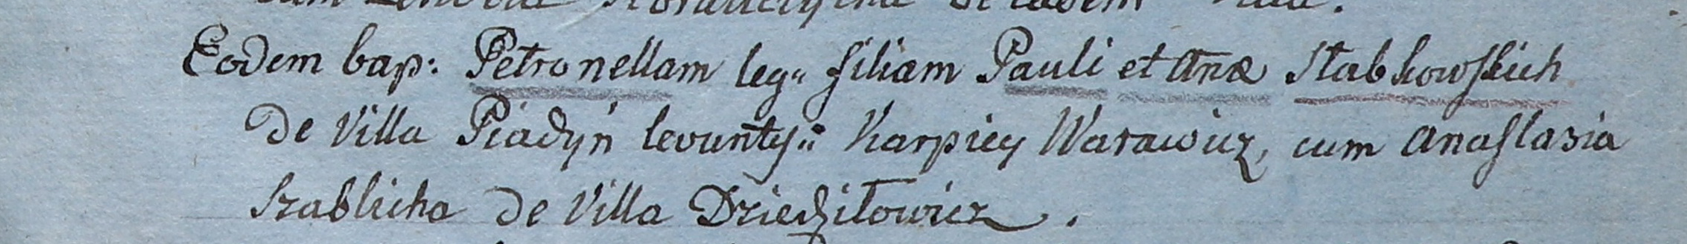 Eodem bap: Petronellam leg: filiam Pauli et Anæ Stabkowskich
De Villa Piadyń levunty: Karpiey Warawicz, cum Anastasia
Szablicha De Villa Dziedziłowicz.